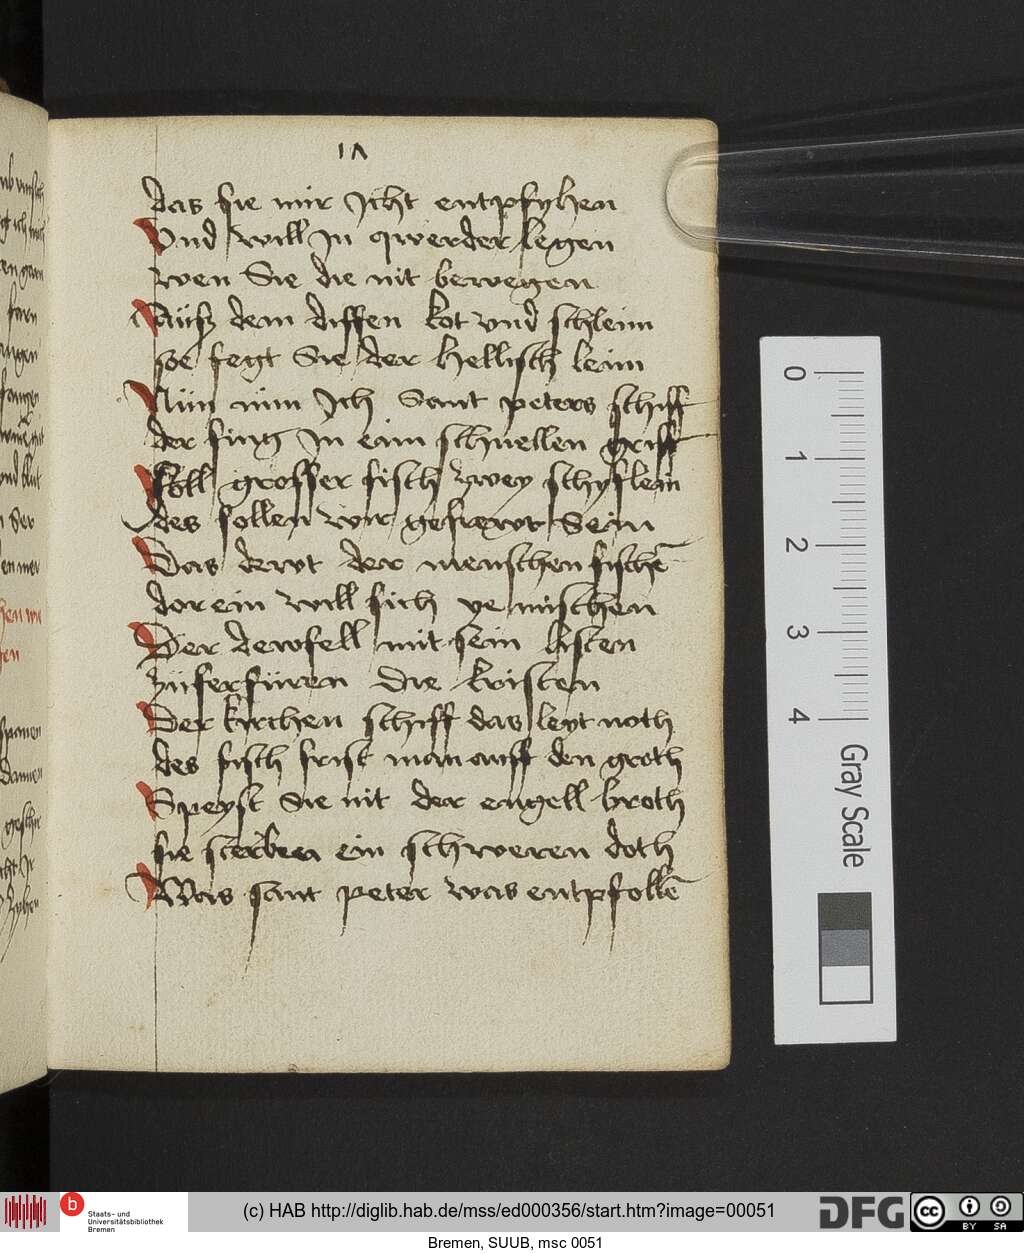 17
das sie mir Icht entpfyhen
Vnd will In qwerder legen
wen Sie die nit bewegen
Auß dem diffen kot vnd schleim
soe fegt Sie der hellisch leim
Nun nim Ich Sant peters schiff
der fing In eim schnellen griff
foll grosser fisch zwey schyflein
des sollen wir gefrewt Sein
Das dewt der menschen fischē
dor ein will sich ye mischen
Der dewfell mit sein listen
zuferfüren Die kristen
Der kirchen schiff das leyt noth
des fisch frist man auff den groth
Speyst Sie nit der engell broth
sie sterben ein schweren doth
Was sant peter was entpfollē
0
1
2
3
4
Gray Scale
b
Staats- und
Universitätsbibliothek
Bremen
(c) HAB http://diglib.hab.de/mss/ed000356/start.htm?image=00051
DFG
cc
BY SA
Bremen, SUUB, msc 0051